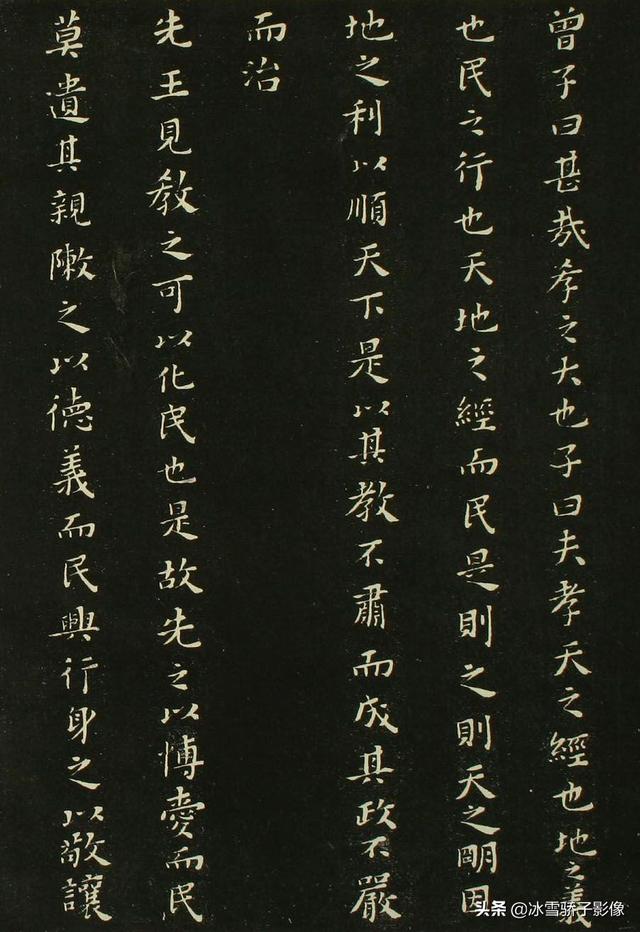 曾子曰甚哉孝之大也子曰夫孝天之經也地之義
也民之行也天地之經而民是則之則天之明因
地之利以順天下是以其教不肅而成其政不嚴
而治
先王見教之可以化民也是故先之以博愛而民
莫遺其親敶之以德義而民興行身之以敬讓
头条 @冰雪骄子影像